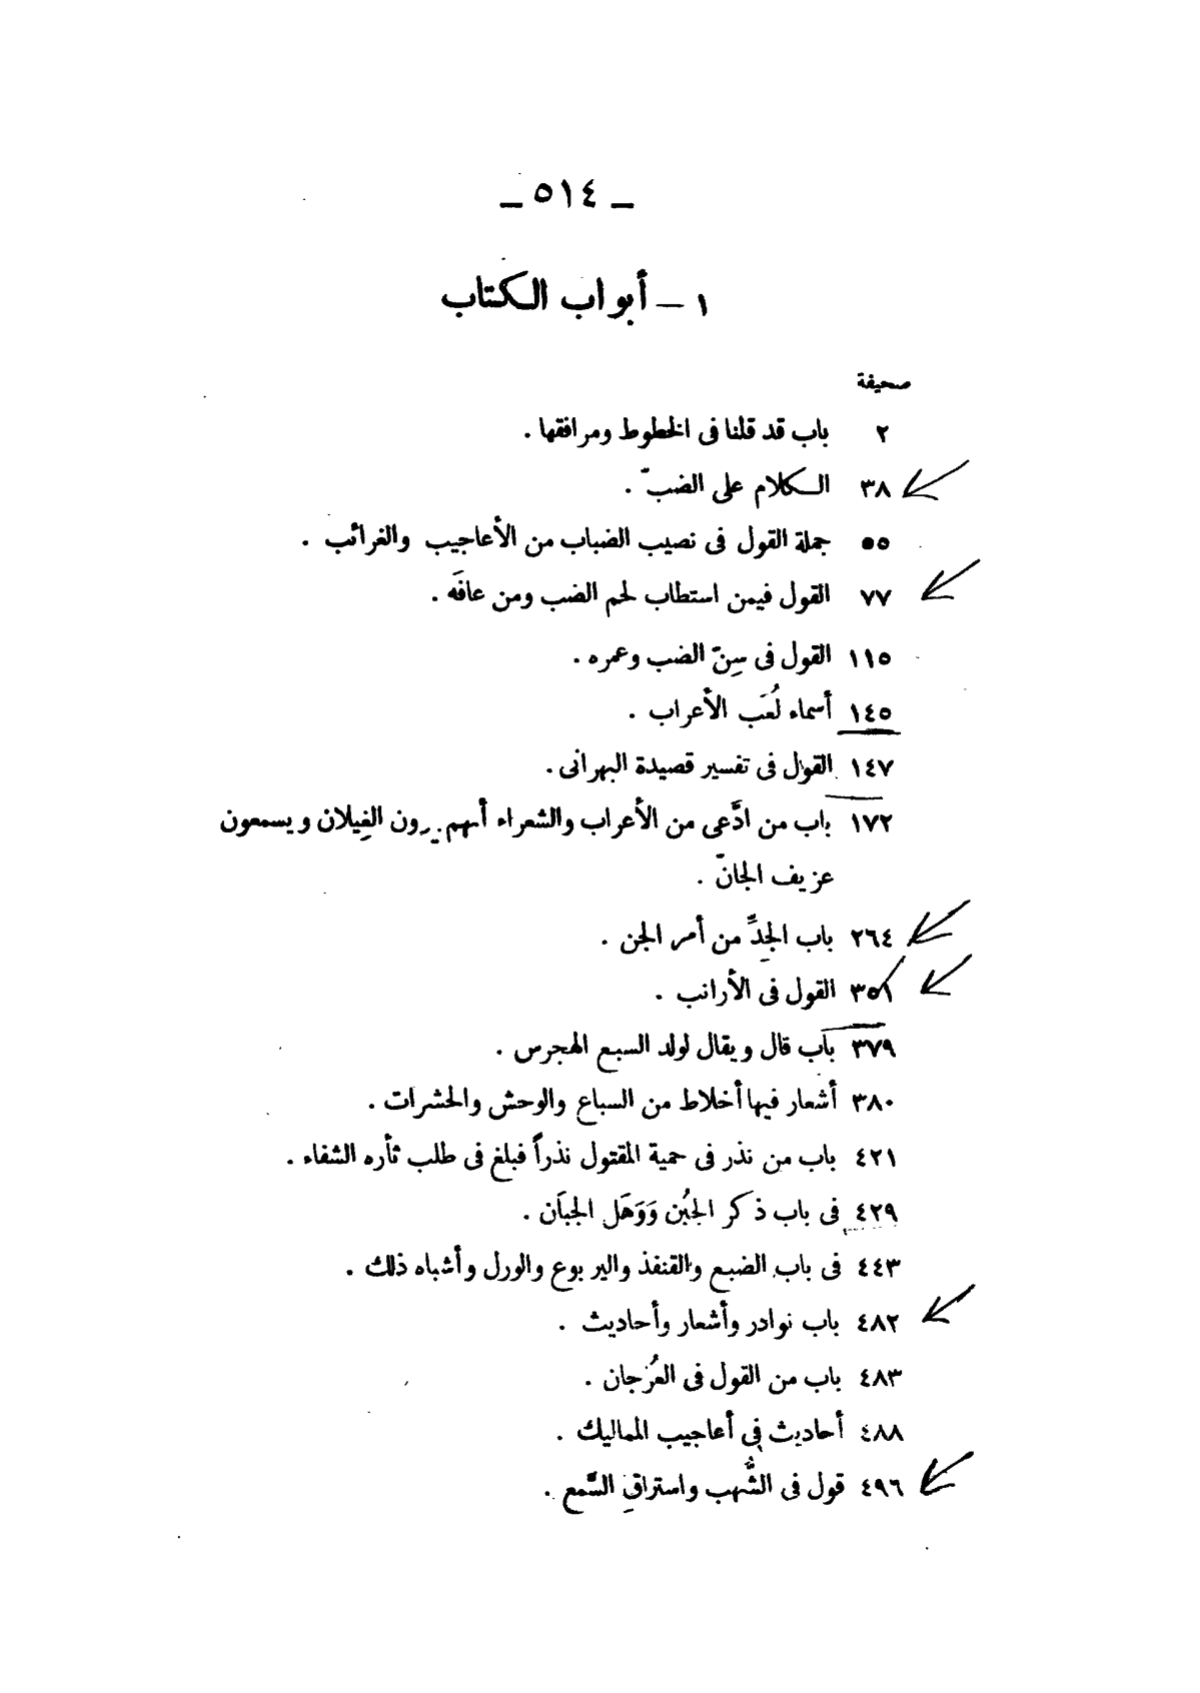 ـ ٥١٤ ـ
١ ـ أبواب الكتاب
صحيفة
٢ باب قد قلنا فى الخطوط ومرافقها .
٣٨ الكلام على الضبّ .
٥٥ جملة القول فى نصيب الضباب من الأعاجيب والغرائب .
٧٧ القول فيمن استطاب لحم الضب ومن عافَه .
١١٥ القول فى سِنّ الضب وعمره .
١٤٥ أسماء لُعَب الأعراب .
١٤٧ القول فى تفسير قصيدة البهرانى .
١٧٢ باب من ادَّعى من الأعراب والشعراء أنهم يرون الغِيلان ويسمعون
عزيف الجانّ .
٢٦٤ باب الجِدِّ من أمر الجن .
٣٥١ القول فى الأرانب .
٣٧٩ باب قال ويقال لولد السبع الهجرس .
٣٨٠ أشعار فيها أخلاط من السباع والوحش والحشرات .
٤٢١ باب من نذر فى حمية المقتول نذراً فبلغ فى طلب ثأره الشفاء .
٤٢٩ فى باب ذكر الجُبن وَوَهَل الجبَان .
٤٤٣ فى باب الضبع والقنفذ واليربوع والورل وأشباه ذلك .
٤٨٢ باب نوادر وأشعار وأحاديث .
٤٨٣ باب من القول فى العُرْجان .
٤٨٨ أحاديث فى أعاجيب المماليك .
٤٩٦ قول فى الشُّهب واستراقِ السَّمع .